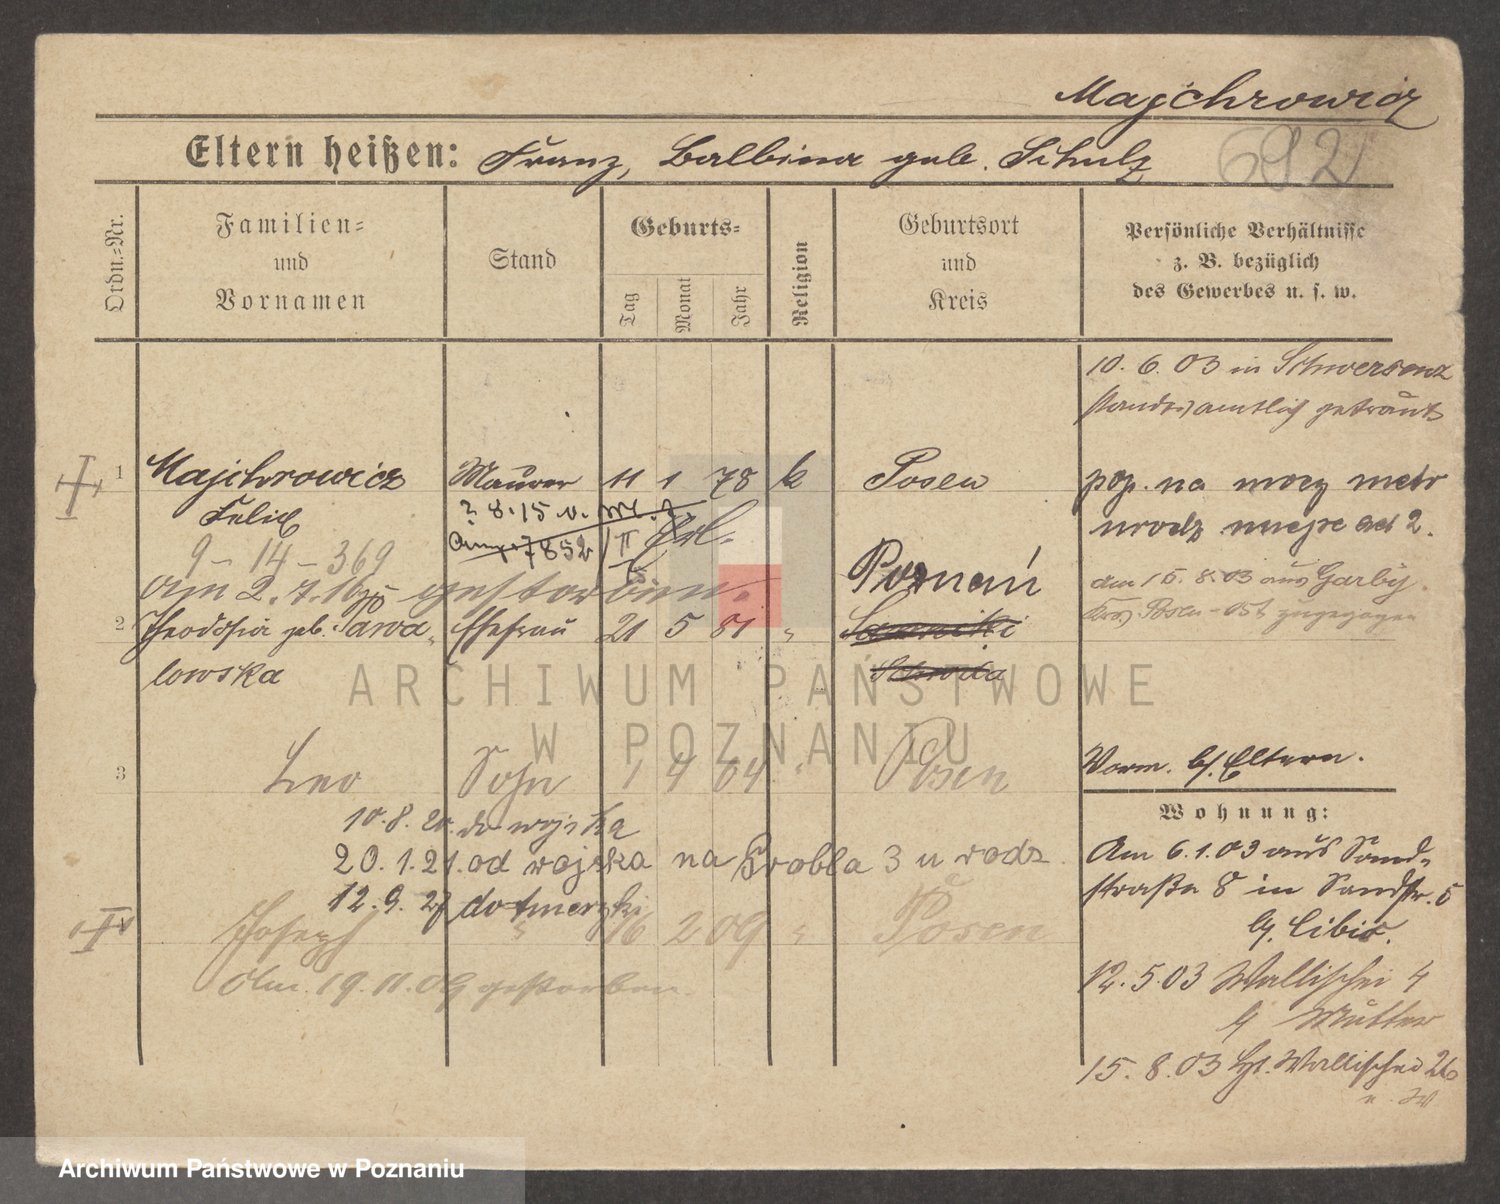 Majchrowicz
692
Eltern heißen: Franz, Balbina geb. Schulz
Ordn.=Nr.
Familien=
und
Vornamen
Stand
Geburts=
Tag
Monat
Jahr
Religion
Geburtsort
und
Kreis
Persönliche Verhältnisse
z. B. bezüglich
des Gewerbes u. s. w.
10. 6. 03 in Schwersenz
standesamtlich getraut
1 Majchrowicz Maurer 11 1 78 k Posen
Felix
9 - 14 - 369
7852 II
am 2. 7. 16 gestorben.
pop. na mocy metr
urodz
Poznań
am 15. 8. 03 aus
Posen-Ost zugezogen
2 Theodosia geb. Pawa- Ehefrau 21 5 81 "
lowska
Schroda
3 Leo Sohn 1 4 04 " Posen
Vorm. b/. Eltern.
10.8.20. do wojska
20.1.21. od wojska na Grobla 3 u rodz.
12.9.27 do
Joseph " 16 2 09 " Posen
Am 19. 11. 09 gestorben.
Wohnung:
Am 6.1.03 aus Sand-
straße 8 in Sandstr. 5
b/.
12. 5. 03 Wallischei 4
b/ Mutter
15. 8. 03 Wallischei 26
ARCHIWUM PAŃSTWOWE
W POZNANIU
Archiwum Państwowe w Poznaniu